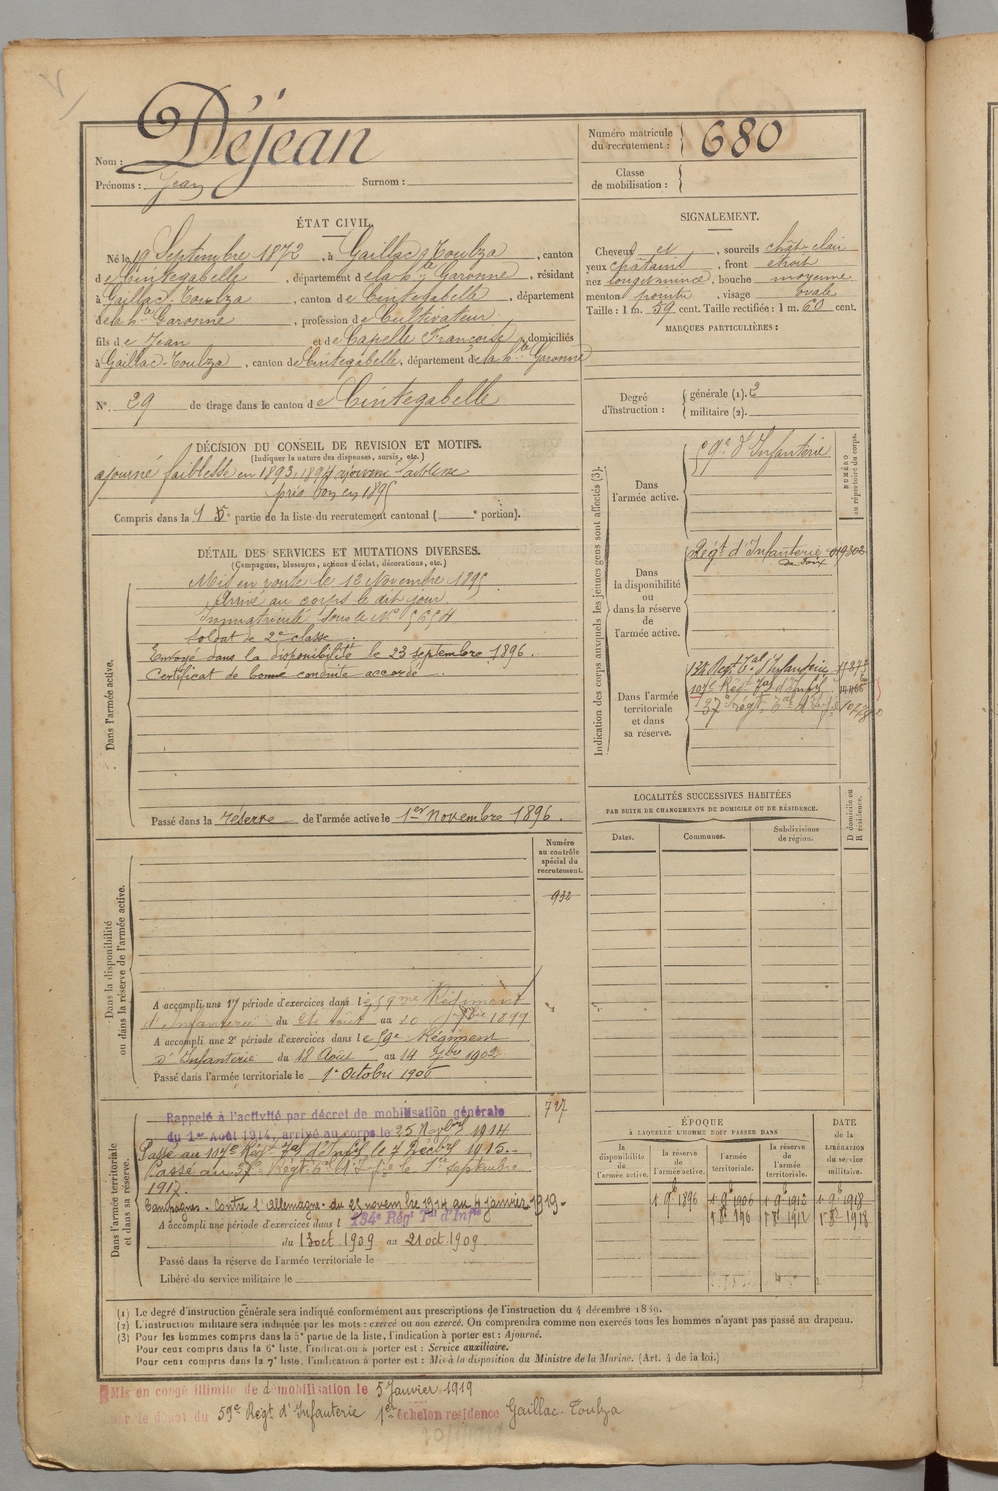 Nom : Déjean
Prénoms : Jean Surnom :
Numéro matricule du recrutement : 680
Classe de mobilisation :
ÉTAT CIVIL.
Né le 19 Septembre 1872, à Gaillac-Toulza, canton
de Cintegabelle, département de la hte Garonne, résidant
à Gaillac-Toulza, canton de Cintegabelle, département
de la hte Garonne, profession de Cultivateur
fils de Jean et de Capelle Françoise, domiciliés
à Gaillac-Toulza, canton de Cintegabelle, département de la hte Garonne
N° 29 de tirage dans le canton de Cintegabelle
SIGNALEMENT.
Cheveux et, sourcils chât clair
yeux châtains, front étroit
nez long et mince, bouche moyenne
menton pointu, visage ovale
Taille : 1 m. 59 cent. Taille rectifiée : 1 m. 60 cent.
MARQUES PARTICULIÈRES :
Degré d'instruction : générale (1). 3
militaire (2).
DÉCISION DU CONSEIL DE REVISION ET MOTIFS.
(Indiquer la nature des dispenses, sursis, etc.)
ajourné faiblesse en 1893, 1894 ajourné faiblesse
pris bon en 1895
Compris dans la 5e partie de la liste du recrutement cantonal ( e portion).
DÉTAIL DES SERVICES ET MUTATIONS DIVERSES.
(Campagnes, blessures, actions d'éclat, décorations, etc.)
Dans l'armée active.
Mis en route le 12 Novembre 1895
Arrivé au corps le dit jour
Immatriculé sous le N° 5654
Soldat de 2e classe.
Envoyé dans la disponibilité le 23 septembre 1896.
Certificat de bonne conduite accordé.
Passé dans la réserve de l'armée active le 1er Novembre 1896.
Indication des corps auxquels les jeunes gens sont affectés (3).
NUMÉRO au répertoire du corps.
Dans l'armée active.
59e d'Infanterie
Dans la disponibilité ou dans la réserve de l'armée active.
Régt d'Infanterie de Foix 019302
Dans l'armée territoriale et dans sa réserve.
134 Régt Tal d'Infanterie
107e Régt Tal d'Infie
37e régt
LOCALITÉS SUCCESSIVES HABITÉES
PAR SUITE DE CHANGEMENTS DE DOMICILE OU DE RÉSIDENCE.
Dates. Communes. Subdivisions de région. D domicile ou R résidence.
Numéro au contrôle spécial du recrutement.
932
Dans la disponibilité ou dans la réserve de l'armée active.
A accompli une 1re période d'exercices dans le 59me Régiment
d'Infanterie du 24 Août au 20 7bre 1899
A accompli une 2e période d'exercices dans le 59e Régiment
d'Infanterie du 18 Août au 14 7bre 1902
Passé dans l'armée territoriale le 1er Octobre 1906
Dans l'armée territoriale et dans sa réserve.
727
Rappelé à l'activité par décret de mobilisation générale
du 1er Août 1914, arrivé au corps le 25 Novbre 1914
Passé au 107e Régt Tal d'Infie le 7 Décbre 1915.
Passé au 37e Régt le 1er septembre
1917.
Campagnes. Contre l'allemagne du 25 novembre 1914 au 4 janvier 1919.
A accompli une période d'exercices dans l 134e Régt Tal d'Infie
du 13 oct 1909 au 21 oct 1909
Passé dans la réserve de l'armée territoriale le
Libéré du service militaire le
ÉPOQUE
À LAQUELLE L'HOMME DOIT PASSER DANS
la disponibilité de l'armée active. la réserve de l'armée active. l'armée territoriale. la réserve de l'armée territoriale.
DATE de la LIBÉRATION du service militaire.
1 9b 1896 1 9b 1906 1 9b 1912 1 9b 1918
1 8b 1906 1 8b 1912 1 8b 1918
(1) Le degré d'instruction générale sera indiqué conformément aux prescriptions de l'instruction du 4 décembre 1889.
(2) L'instruction militaire sera indiquée par les mots : exercé ou non exercé. On comprendra comme non exercés tous les hommes n'ayant pas passé au drapeau.
(3) Pour les hommes compris dans la 5e partie de la liste, l'indication à porter est : Ajourné.
Pour ceux compris dans la 6e liste, l'indication à porter est : Service auxiliaire.
Pour ceux compris dans la 7e liste, l'indication à porter est : Mis à la disposition du Ministre de la Marine. (Art. 4 de la loi.)
Mis en congé illimité de démobilisation le 5 Janvier 1919
par le dépôt du 59e Régt d'Infanterie 1er échelon residence Gaillac-Toulza